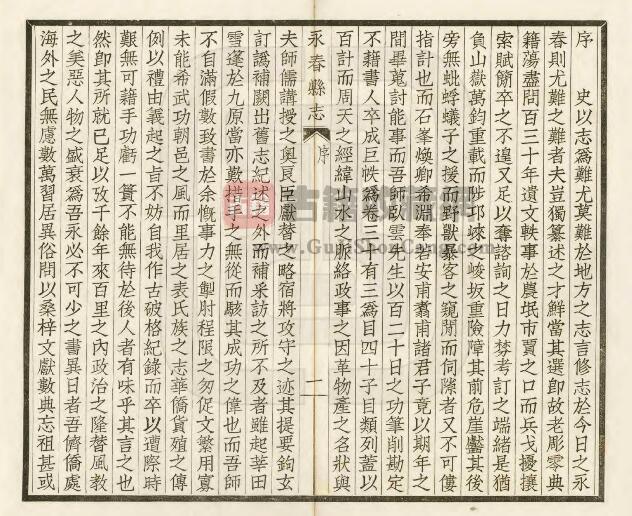 序
史以志爲難尤莫難於地方之志言修志於今日之永
春則尤難之難者夫豈獨纂述之才鮮當其選卽故老彫零典
籍蕩盡問百三十年遺文軼事於農氓市賈之口而兵戈擾攘
索賦簡卒之不遑又足以奪諮詢之日力棼考訂之端緒是猶
負山嶽萬鈞重載而陟邛崍之峻坂重險障其前危崖齾其後
旁無蚍蜉蟻子之援而野獸暴客之窺閒而伺隙者又不可僂
指計也而石峯煥卿希淵奉若安甫翥甫諸君子竟以期年之
閒畢蒐討能事而吾師臥雲先生以百二十日之功筆削勘定
不藉書人卒成巨帙爲卷三十有三爲目四十子目類列蓋以
百計而周天之經緯山水之脈絡政事之因革物產之名狀與
永春縣志
序
一
夫師儒講授之奧良臣獻替之略宿將攻守之迹其提要鉤玄
訂譌補闕出舊志紀述之外而補采訪之所不及者雖起莘田
雪逢於九原當亦歎措手之無從而駭其成功之偉也而吾師
不自滿假數致書於余慨事力之掣肘程限之匆促文繁用寡
未能希武功朝邑之風而里居之表氏族之志華僑貨殖之傳
例以禮由義起之旨不妨自我作古破格紀錄而卒以遭際時
艱無可藉手功虧一簣不能無待於後人者有味乎其言之也
然卽其所就已足以攷千餘年來百里之內政治之隆替風敎
之美惡人物之盛衰爲吾永必不可少之書異日者吾儕僑處
海外之民無慮數萬習居異俗閒以桑梓文獻數典忘祖甚或
古籍收藏網
www.GuJiShouCang.com